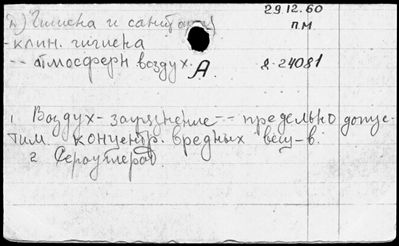 л) Гигиена и санитар
29.12.60
п.м
- клин. гигиена
-- атмосферн воздух.
А.
2-24081
1. Воздух - загрязнение -- предельно допус-
тим. концентр. вредных вещ-в.
2. Сероуглерод.